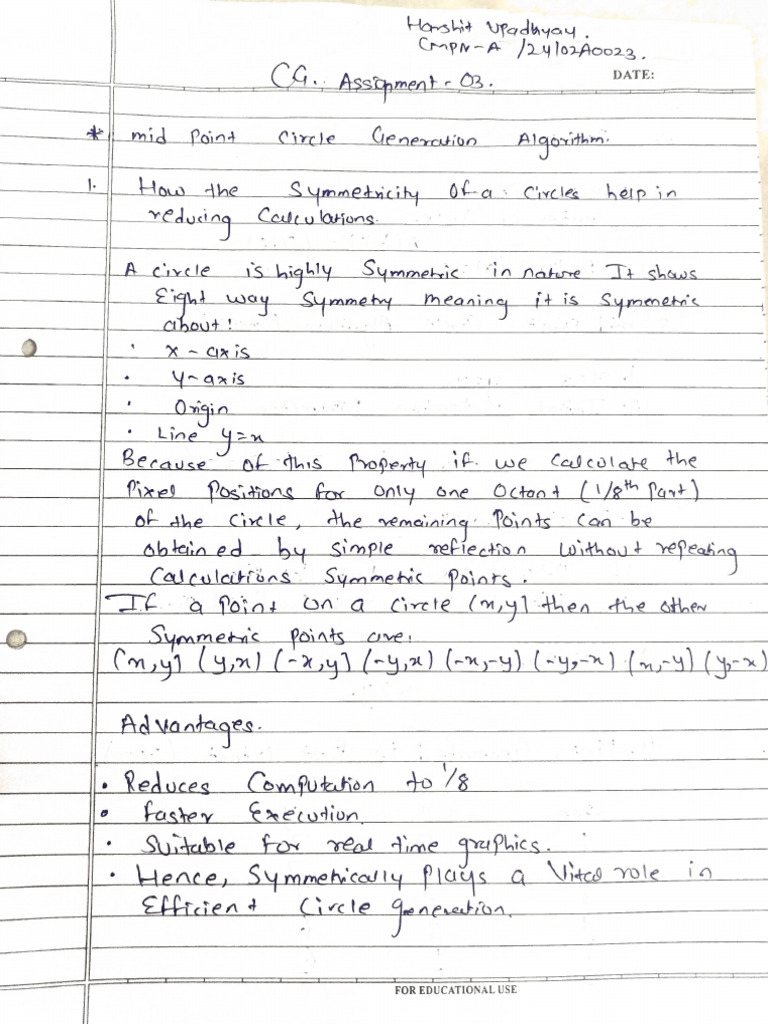 Harshit Upadhyay.
CMPN-A /24102A0023.
CG. Assignment - 03.
DATE:
* mid Point Circle Generation Algorithm.
1. How the Symmetricity of a Circles help in
reducing Calculations.
A circle is highly Symmetric in nature It shows
Eight way Symmetry meaning it is Symmetric
about:
· x - axis
· y - axis
· Origin
· Line y=x
Because of this Property if we calculate the
Pixel Positions for only one Octant (1/8th Part)
of the circle, the remaining Points can be
obtained by simple reflection without repeating
Calculations Symmetric Points.
If a point on a circle (x,y] then the other
Symmetric points are.
(x,y] (y,x) (-x,y] (-y,x) (-x,-y) (-y,-x) (x,-y) (y,-x)
Advantages.
· Reduces Computation to 1/8
· faster Execution.
· Suitable for real time graphics.
· Hence, Symmetrically plays a Vital role in
Efficient Circle generation.
FOR EDUCATIONAL USE